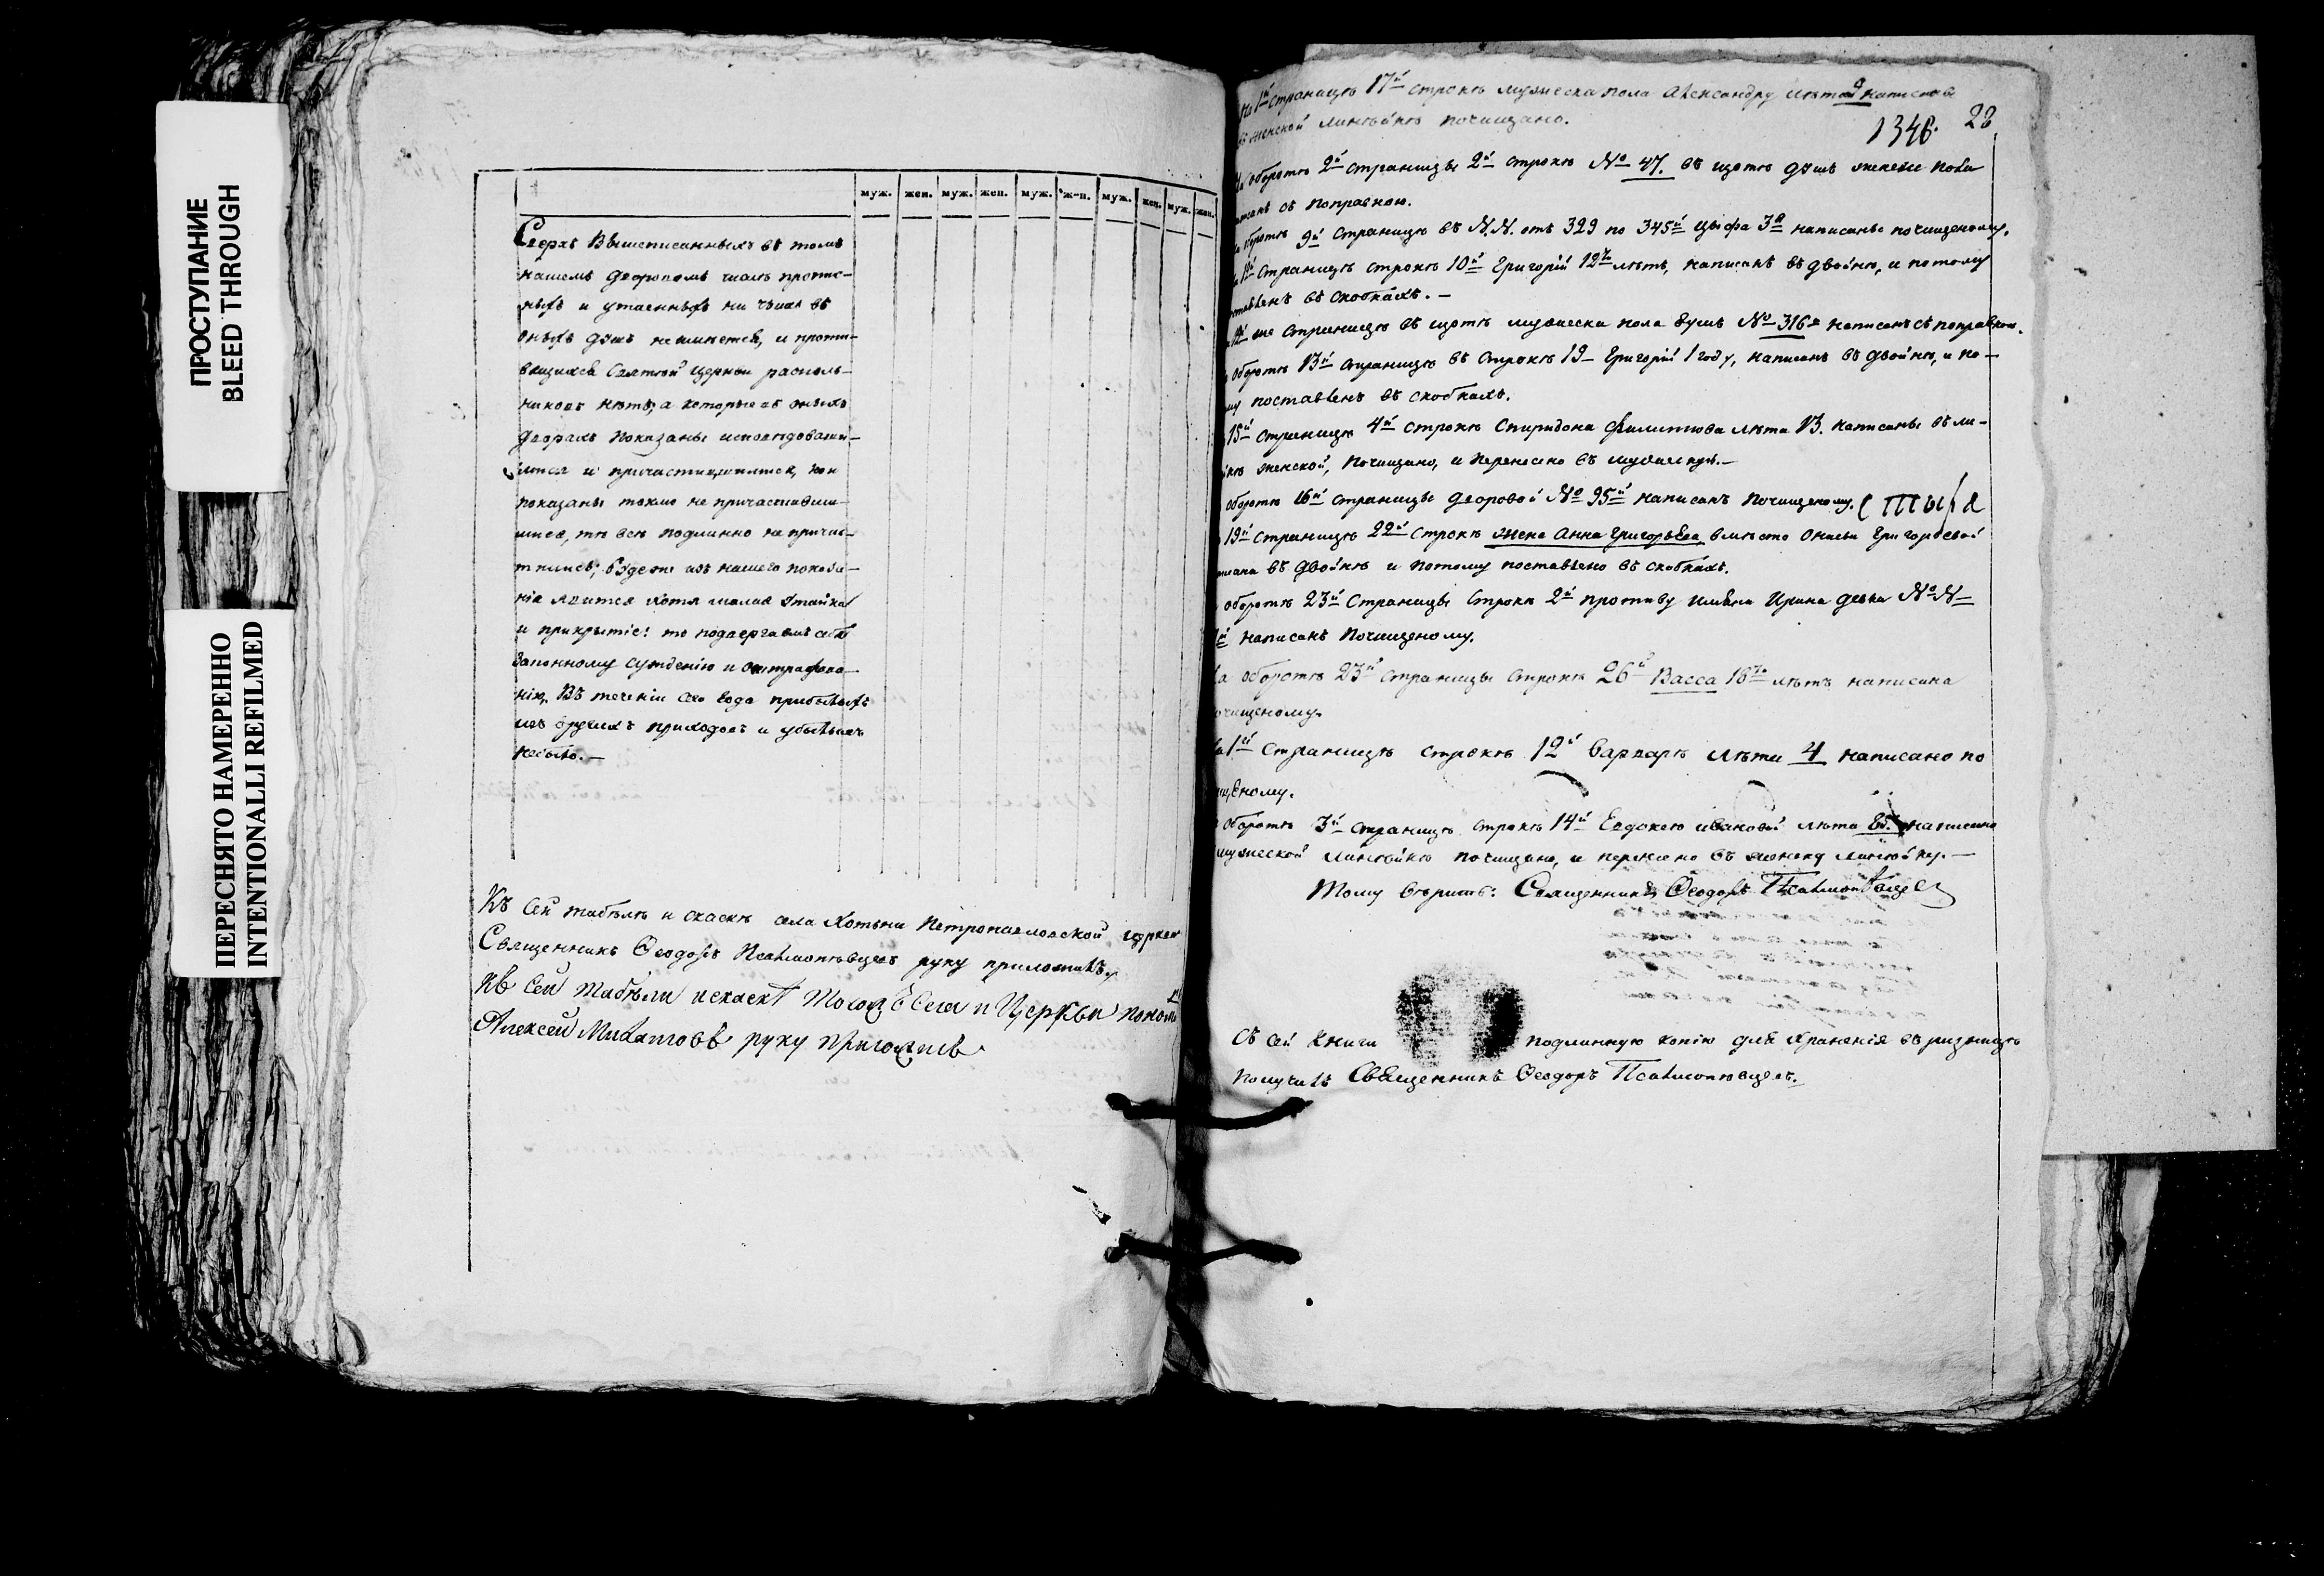 ПРОСТУПАНИЕ
BLEED THROUGH
ПЕРЕСНЯТО НАМЕРЕННО
INTENTIONALLI REFILMED
муж. жен. муж. жен. муж. жен. муж. жен. муж. жен.
Сверхъ Вышеписанныхъ въ томъ
нашемъ дворовомъ числѣ пропис-
ныхъ и утаенныхъ ни чіихъ въ
оныхъ душъ неимѣется, и проти-
вящихся Святой Церкви расколь-
никовъ нѣтъ; а которые въ оныхъ
дворахъ показаны исповѣдовавши-
мися и причастившимися, кои
показаны токмо не причастивши-
мися, тѣ всѣ подлинно не причас-
тились; будеже изъ нашего показа-
нія явится хотя малая утайка
и прикрытіе: то подвергаемъ себя
законному сужденію и оштрафова-
нію, Въ теченіи сего года прибылыхъ
изъ другихъ приходовъ и убылыхъ
небыло.—
Къ сей табѣлѣ и скаскѣ села Хотыни Петропавловской церкви
Священникъ Ѳеодоръ Псаломовцевъ руку приложилъ,
Къ сей табѣли искаскѣ тогожъ села и Церкви поном
Алексей руку приложилъ
На 1й страницѣ 17й строкѣ мужеска пола Александру лѣта 9 написаны
въ женской линѣйкѣ почищано.
1346. 28
На оборотѣ 2й страницы 2й строкѣ № 47. въ щотѣ душъ женска пола
съ поправкою.
оборотѣ 9й страницѣ въ N.N. отъ 329 по 345й цыфра 3я написаны почищеному.
1й страницѣ строкѣ 10й Григорій 12ть лѣтъ, написанъ въ двойнѣ, и потому
поставленъ въ скобкахъ.—
же страницѣ въ щотѣ мужеска пола душъ № 316й написанъ съ поправкою.
оборотѣ 13й страницѣ въ строкѣ 19 Григорій 1 году, написанъ въ двойнѣ, и по-
му поставленъ въ скобкахъ.
15й страницѣ 4й строкѣ Спиридона Филиппова лѣта 13. написаны въ ли-
женской, почищано, и перенесено въ мужескую.—
оборотѣ 16й страницы дворовой № 95й написанъ почищеному.
19й страницѣ 22й строкѣ жена Анна Григорьева вмѣсто Григорьевой
въ двойнѣ и потому поставлено въ скобкахъ.
оборотѣ 23й страницы строкѣ 2й противу имяни Ирина девка №N
написанъ почищеному.
На оборотѣ 23й страницы строкѣ 26й Васса 16ть лѣтъ написана
почищеному.
1й страницѣ строкѣ 12й Варваре лѣты 4 написано по
щеному.
оборотѣ 3й страницѣ строкѣ 14й Евдокею ивановой лѣта написано
мужеской линѣйкѣ почищано, и перенесено въ женску линѣйку.—
Тому вѣрить: Священникъ Ѳеодоръ Псаломовцевъ
Съ сей книги подлинную копію для храненія въ ризницѣ
получилъ Священникъ Ѳеодоръ Псаломовцевъ.